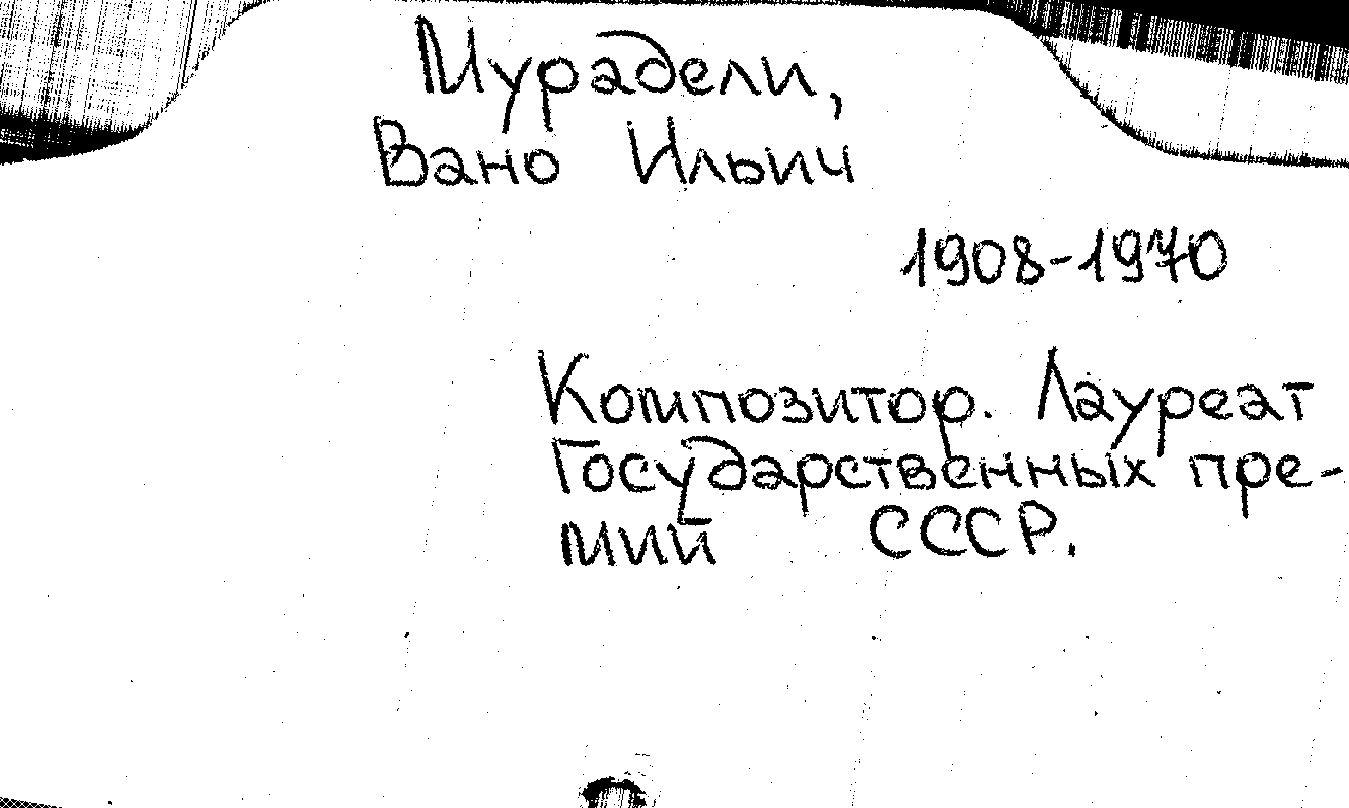 Мурадели,
Вано Ильич
1908-1970
Композитор. Лауреат
Государственных пре-
мий СССР.